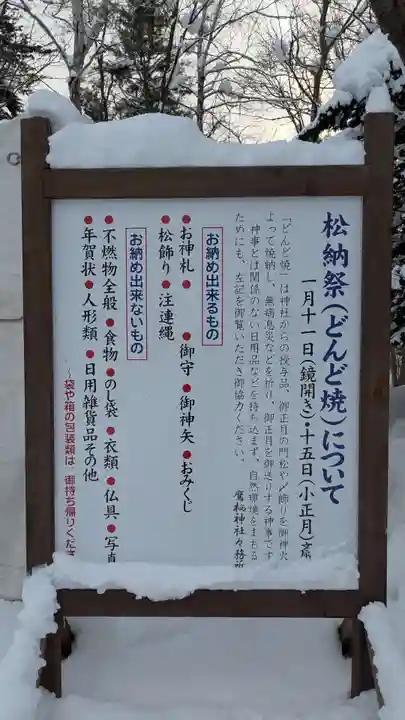 松納祭(どんど焼)について
一月十一日(鏡開き)・十五日(小正月)
「どんど焼」は神社からの授与品、御正月の門松や〆飾りを御神火
よって焼納し、無病息災などを祈り、御正月を御送りする神事です
神事とは関係のない日用品などを持ち込まず、自然環境をまもる
ためにも、左記を御覧いただき御協力ください。
鷹栖神社々務所
お納め出来るもの
●お神札 ●御守 ●御神矢 ●おみくじ
●松飾り ●注連縄
お納め出来ないもの
●不燃物全般 ●食物 ●のし袋 ●衣類 ●仏具 ●写真
●年賀状 ●人形類 ●日用雑貨品その他
~袋や箱の包装類は 御持ち帰りくださ